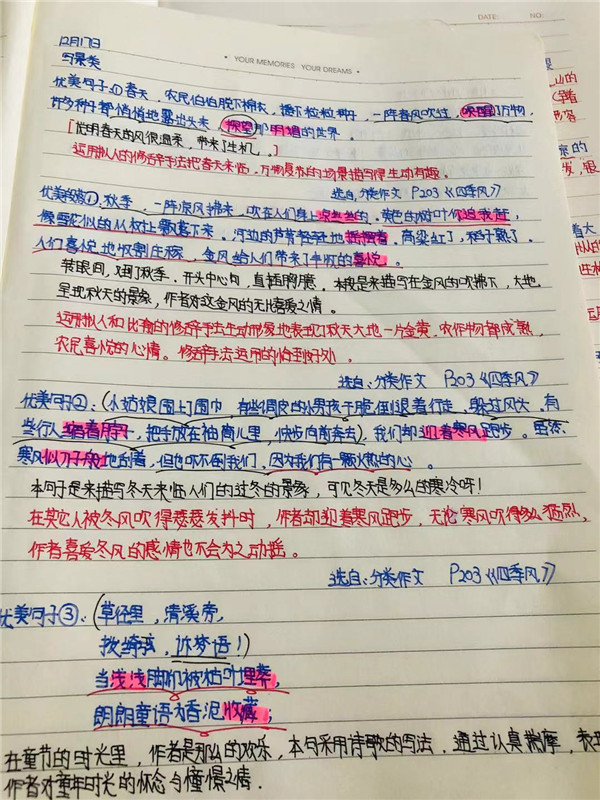 DATE: NO:
YOUR MEMORIES · YOUR DREAMS
12月17日
写景类
优美句子①春天，农民伯伯脱下棉衣，播下粒粒种子，一阵春风吹过，唤醒了万物，
许多种子都悄悄地露出头来，探望那明媚的世界。
[说明春天的风很温柔，带来了生机。]
运用拟人的修辞手法把春天来临，万物复苏的场景描写得生动有趣。
选自：分类作文 P203《四季风》
优美的段①，秋季，一阵凉风拂来，吹在人们身上凉丝丝的。黄色的树叶你追我赶，
像雪花似的从树上飘落下来。河边的芦苇轻轻地摇摆着，高粱红了，稻子熟了。
人们喜悦地收割庄稼，金风给人们带来了丰收的喜悦。
转眼间，又到秋季。开头中心句，直插胸臆。本段是来描写在金风的吹拂下，大地
呈现秋天的景象，作者对这金风的无比喜爱之情。
运用拟人和比喻的修辞手法生动形象地表现了秋天大地一片金黄，农作物都成熟，
农民喜悦的心情。修辞手法运用的恰到好处。
选自：分类作文 P203《四季风》
优美句子②：(小姑娘围上围巾，有些调皮的小男孩子脆倒退着行走，躲过风头。有
些行人缩着脖子，把手放在袖筒儿里，快步向前奔去)，我们却迎着寒风跑步。虽然
寒风似刀子般地刮着，但也吓不倒我们，因为我们有一颗火热的心。
本句子是来描写冬天来临人们的过冬的景象，可见冬天是多么的寒冷呀！
在其它人被冬风吹得瑟瑟发抖时，作者却犯着寒风跑步，无论寒风吹得多么猛烈，
作者喜爱冬风的感情也不会为之动摇。
选自：分类作文 P203《四季风》
优美句子③：(草径里，清溪旁，
拨绮弦，诉梦语！)
当浅浅脚印被枯叶埋葬，
朗朗童语为香泥收藏；
在童节的时光里，作者是那么的欢乐，本句采用诗歌的写法，通过认真揣摩，表现
作者对童年时光的怀念与憧憬之情.